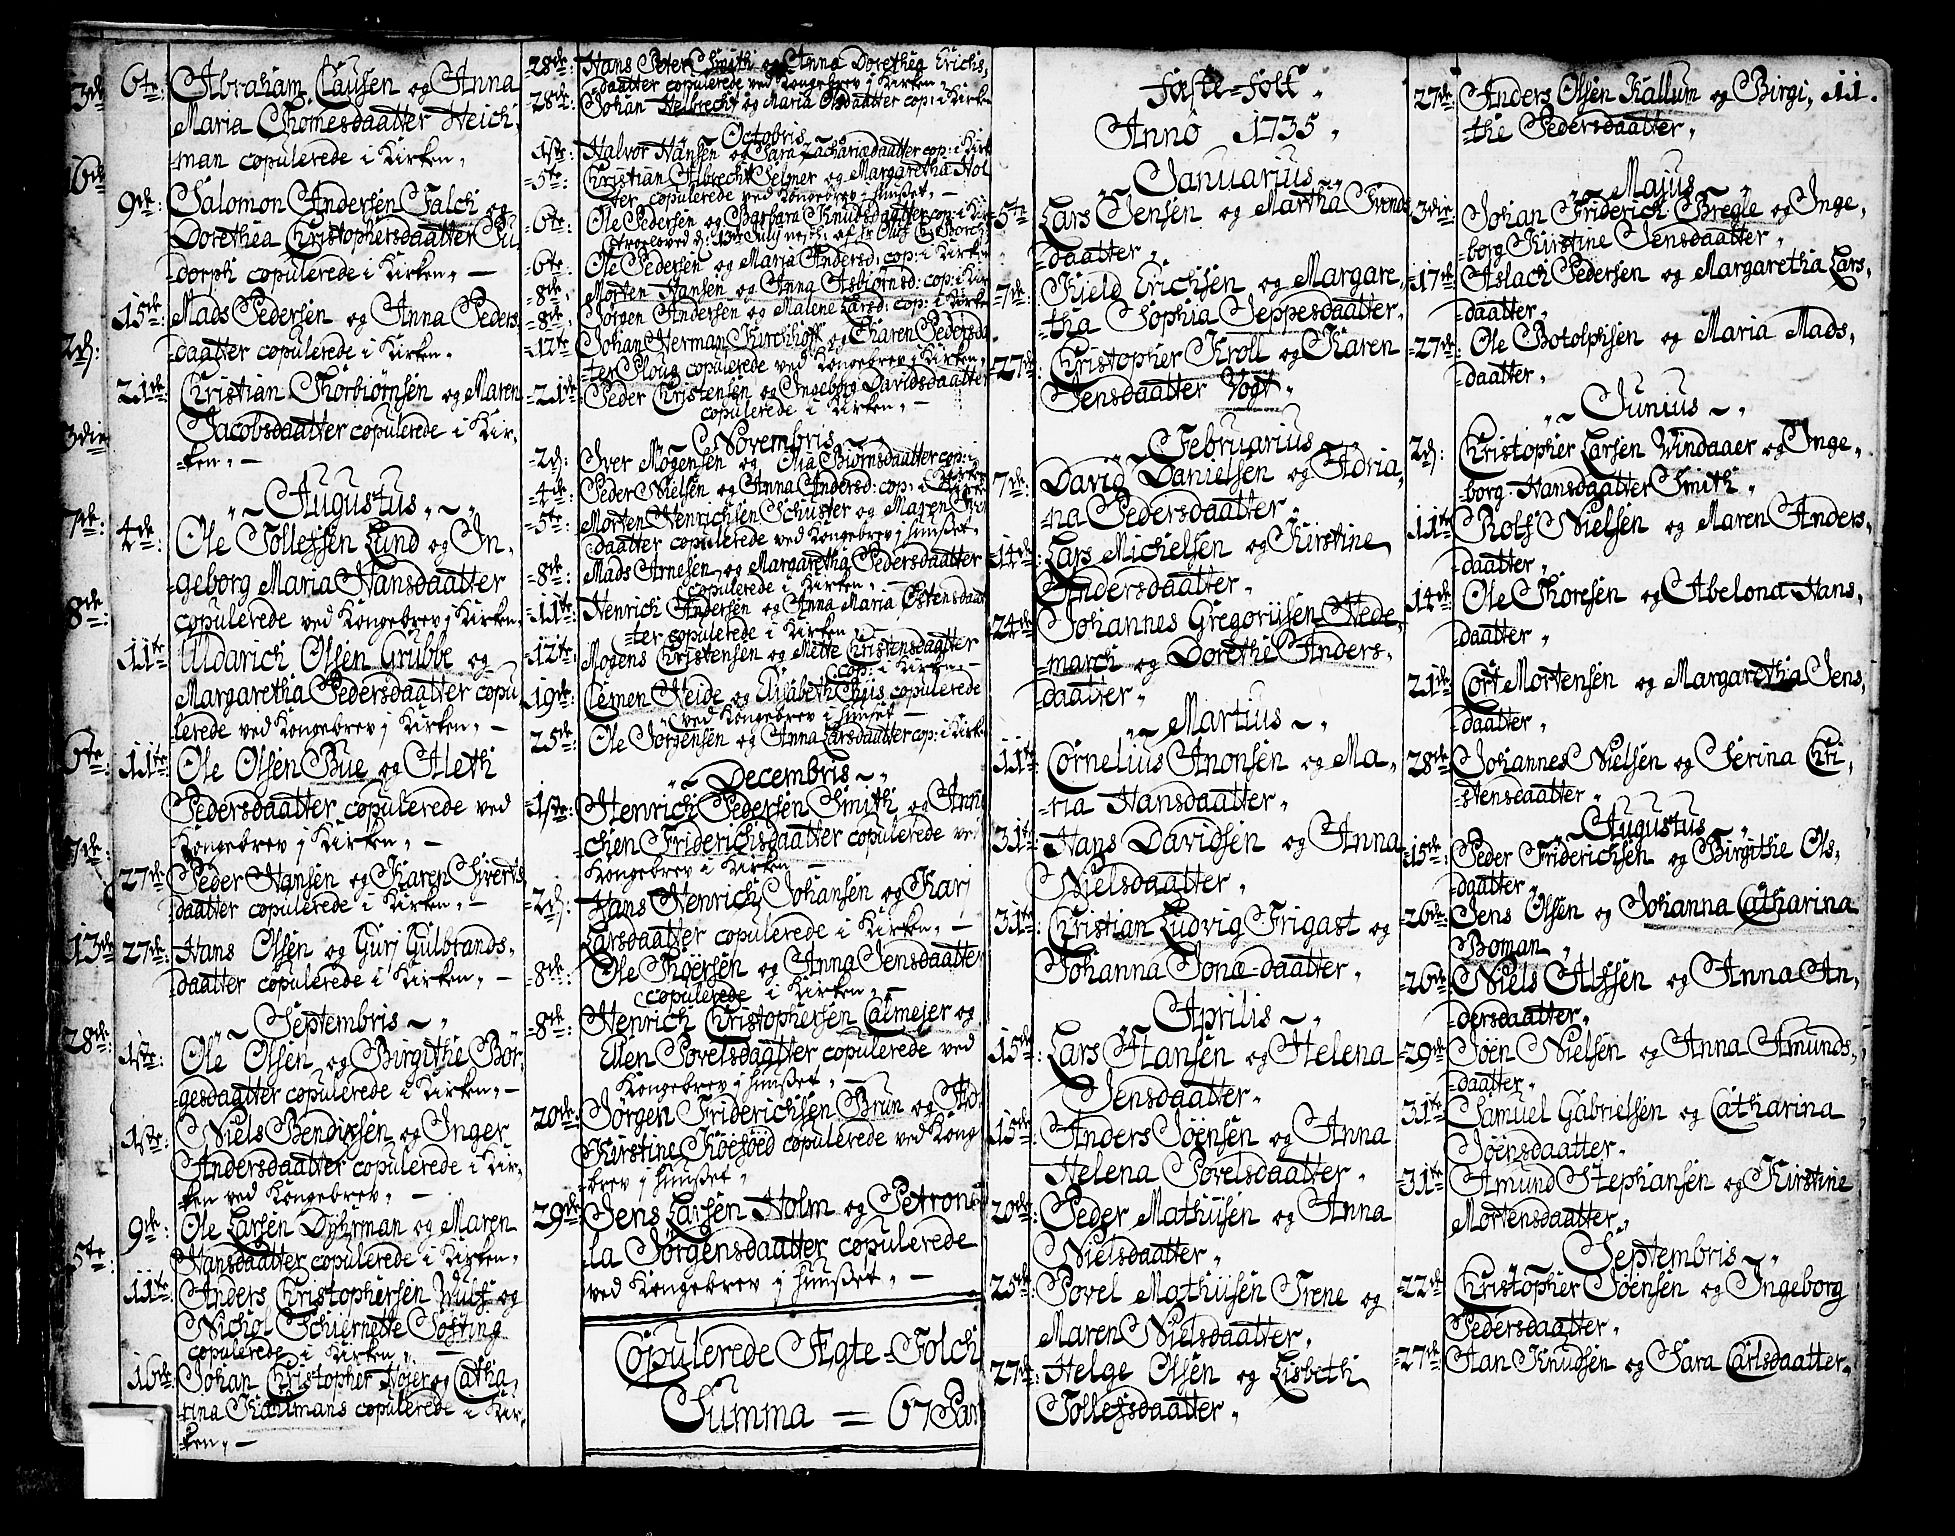 3de
6te: Abraham Clausen og Anna
Maria Thomesdaatter Heich,
man copulerede i Kirken,
6de
9de: Salomon Andersen Falch og
Dorethea Christophersdaatter Pu
dorph copulerede i Kirken, —
15de: Mads Pedersen og Anna Peders
daatter copulerede i Kirken.
21de: Christian Thorbiørnsen og Maren
Jacobsdaatter copulerede i Kir,
ken, —
Augustus
4de: Ole Tollefsen Lund og In,
geborg Maria Hansdaatter
copulerede ved Kongebrev j Kirken.
11te: Uldarich Olsen Grubbe og
Margaretha Pedersdaatter copu,
lerede ved Kongebrev j Kirken, —
11te: Ole Olsen Bue og Aleth
Pedersdaatter copulerede ved
Kongebrev j Kirken, —
27de: Peder Hansen og Karen Siverts
daatter copulerede i Kirken, —
27de: Hans Olsen og Gurj Gulbrands,
daatter copulerede i Kirken, —
Septembris
1ste: Ole Olsen og Birgithe Bør,
gesdaatter copulerede i Kirken, —
1ste: Niels Bendixsen og Inger
Andersdaatter copulerede i Kir,
ken ved Kongebrev, —
9de: Ole Larsen Dyhrman og Maren
Hansdaatter copulerede i Kirken,
11te: Anders Christophersen Wulf og
Nichol Schiernette Tosting
copulerede i Kirken, —
16de: Johan Christopher Høser og Catha,
rina Hartmans copulerede i Kir,
ken, —
28de: Hans Peter Smith og Anna Dorethea Erichs,
daatter copulerede ved Kongebrev j Kirken,
28de: Johan Helbrecht og Maria Olsdaatter cop: i Kirken
Octobris
1ste: Halvor Hansen og Sara Zachariædaatter cop: i Kirk
5te: Christian Albrecht Selmer og Margaretha Hol
ter, copulerede ved Kongebrev j Huuset, —
6te: Ole Pedersen og Barbara Knudsdaatter cop: i Kir
6te: Ole Pedersen og Maria Andersd: cop: i Kirken
8de: Morten Hansen og Anna Asbiørnsd: cop: i Kir
8de: Jørgen Andersen og Malene Larsd: cop: i Kirke
12te: Johan Herman Kirchhoff og Karen Pedersda
ter Ploug copulerede ved Kongebrev j Kirken,
21de: Peder Christensen og Ingeborg Davidsdaatter
copulerede i Kirken, —
Novembris
2d: Iver Mogensen og Olia Biørnsdaatter cop: i
Kirken
4de: Peder Nielsen og Anna Andersd: cop: i Kirken
5te: Morten Henrichsen Schuster og Maren
daatter copulerede ved Kongebrev j Huuset, —
8de: Mads Arnesen og Margaretha Pedersdaatter
copulerede i Kirken, —
11te: Henrich Andersen og Anna Maria Østensdaat
ter copulerede i Kirken, —
12te: Mogens Christensen og Mette Christensdaatter
cop: i Kirken, —
19de: Clemen Heide og Elisabeth Theis copulerede
ved Kongebrev i Huuset —
25de: Ole Jørgensen og Anna Larsdaatter cop: i Kirk
Decembris
1ste: Henrich Pedersen Smith og Ann
chen Friderichsdaatter copulerede ved
Kongebrev i Kirken, —
2d: Hans Henrich Johansen og Kari
Larsdaatter copulerede i Kirken, —
8de: Ole Thoersen og Anna Jensdaatter
copulerede i Kirken, —
8de: Henrich Christophersen Calmejer og
Ellen Povelsdaatter copulerede ved
Kongebrev j Huuset, —
20de: Jørgen Friderichsen Brun og
Kirstine Køesøed copulerede ved Kong
brev j Huuset,
29de: Jens Larsen Holm og Petronel
la Jørgensdaatter copulerede
ved Kongebrev j Huuset, —
Copulerede Ægte-Folch
Summa = 67 Par
Fæste-Folk,
Annô 1735,
Januarius
5te: Lars Jensen og Martha Svends
daatter,
7de: Kield Erichsen og Margare,
tha Sophia Jeppesdaatter.
27de: Christopher Kroll og Karen
Jensdaatter Vogt,
Februarius
7de: David Danielsen og Adria,
na Pedersdaatter,
14de: Lars Michelsen og Kirstine
Andersdaatter,
24de: Johannes Gregoriisen Hede
march og Dorethe Anders,
daatter,
Martius
11te: Cornelius Anonsen og Ma,
ria Hansdaatter,
31te: Hans Davidsen og Anna
Nielsdaatter,
31te: Christian Ludvig Frigast og
Johanna Jonæ-daatter,
Aprilis
15de: Lars Hansen og Helena
Jensdaatter,
15de: Anders Joensen og Anna
Helena Povelsdaatter,
20de: Peder Mathiisen og Anna
Nielsdaatter,
25de: Povel Mathiisen Trene og
Maren Nielsdaatter,
27de: Helge Olsen og Lisbeth
Tollefsdaatter,
27de: Anders Olsen Kallum og Birgi, 11.
the Pedersdaatter,
Majus
3die: Johan Friderich Bregle og Inge,
borg Kirstine Jensdaatter,
17de: Aslach Pedersen og Margaretha Lars,
daatter,
27de: Ole Botolphsen og Maria Mads,
daatter,
Junius
2d: Christopher Larsen Vindaaer og Inge,
borg Hansdaatter Smith,
11te: Rolf Nielsen og Maren Anders,
daatter,
14de: Ole Thoresen og Abelona Hans,
daatter,
21de: Cort Mortensen og Margaretha Jens,
daatter,
28de: Johannes Nielsen og Serina Chri,
stensdaatter,
Augustus
15de: Peder Friderichsen og Birgithe Ols,
daatter,
26de: Jens Olsen og Johanna Catharina
Boman,
26de: Niels Alfsen og Anna An,
dersdaatter,
29de: Joen Nielsen og Anna Amunds,
daatter,
31te: Samuel Gabrielsen og Catharina
Joensdaatter,
31te: Amund Stephansen og Kirstine
Mortensdaatter,
Septembris
22de: Christopher Joensen og Ingeborg
Pedersdaatter,
27de: Han Knudsen og Sara Carlsdaatter,